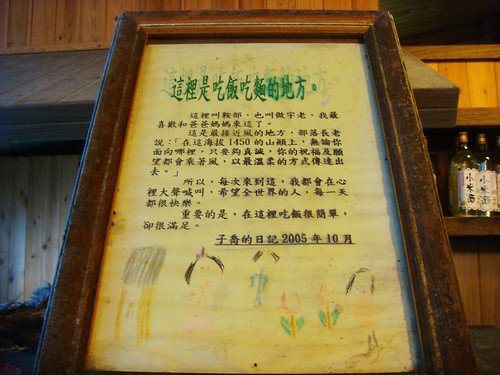 這裡是吃飯吃麵的地方。
這裡叫鞍部，也叫做宇老，我最
喜歡和爸爸媽媽來這了。
這是最接近風的地方，部落長老
說：「在這海拔 1450 的山巔上，無論你
面向哪裡，只要夠真誠，你的祝福及願
望都會乘著風，以最溫柔的方式傳達出
去。」
所以，每次來到這，我都會在心
裡大聲喊叫，希望全世界的人，每一天
都很快樂。
重要的是，在這裡吃飯很簡單，
卻很滿足。
子喬的日記 2005 年 10 月
小米酒
小米酒